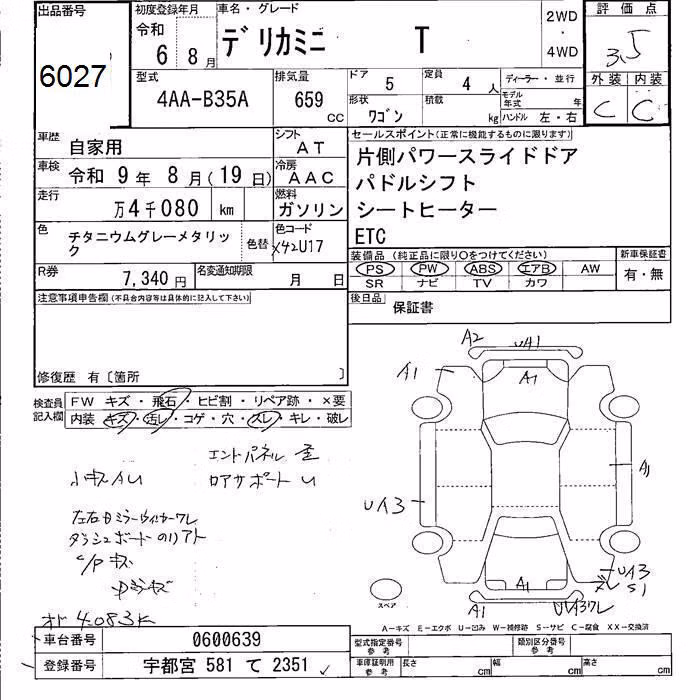 出品番号
6027
初度登録年月
令和
6 8月
車名・グレード
デリカミニ T
2WD
・
4WD
評価点
3.5
外装 内装
C C
型式
4AA-B35A
排気量
659
CC
ドア
5
定員
4 人
形状
ワゴン
積載
kg
ディーラー・並行
モデル年式 年
ハンドル 左・右
車歴
自家用
シフト
AT
車検
令和 9年 8月(19日)
冷房
AAC
走行
万4千080 km
燃料
ガソリン
色
チタニウムグレーメタリック
色替
色コード
X42U17
R券
7,340円
名変通知期限
月 日
セールスポイント(正常に機能するものに限ります)
片側パワースライドドア
パドルシフト
シートヒーター
ETC
装備品(純正品に限り○をつけてください)
PS PW ABS エアB AW
SR ナビ TV カワ
新車保証書
有・無
後日品
保証書
注意事項申告欄(不具合内容等は具体的に記入して下さい)
修復歴 有〔箇所 〕
検査員
記入欄
FW キズ・飛石・ヒビ割・リペア跡・×要
内装 キズ・汚レ・コゲ・穴・スレ・キレ・破レ
小キズAU
エンドパネル
ロアサポートU
左右ドミラーウィカーワレ
ダッシュボードのリアト
C/Pキズ
オド4.083K
A2
UA1
A1
A1
A1
UA3
UA3
S1
A1
A1
UA3ワレ
スペア
A-キズ E-エクボ U-凹み W-補修跡 S-サビ C-腐食 XX-交換済
車台番号
0600639
登録番号
宇都宮 581 て 2351
型式指定番号
参考
類別区分番号
参考
車庫証明用
参考
長さ cm 幅 cm 高さ cm